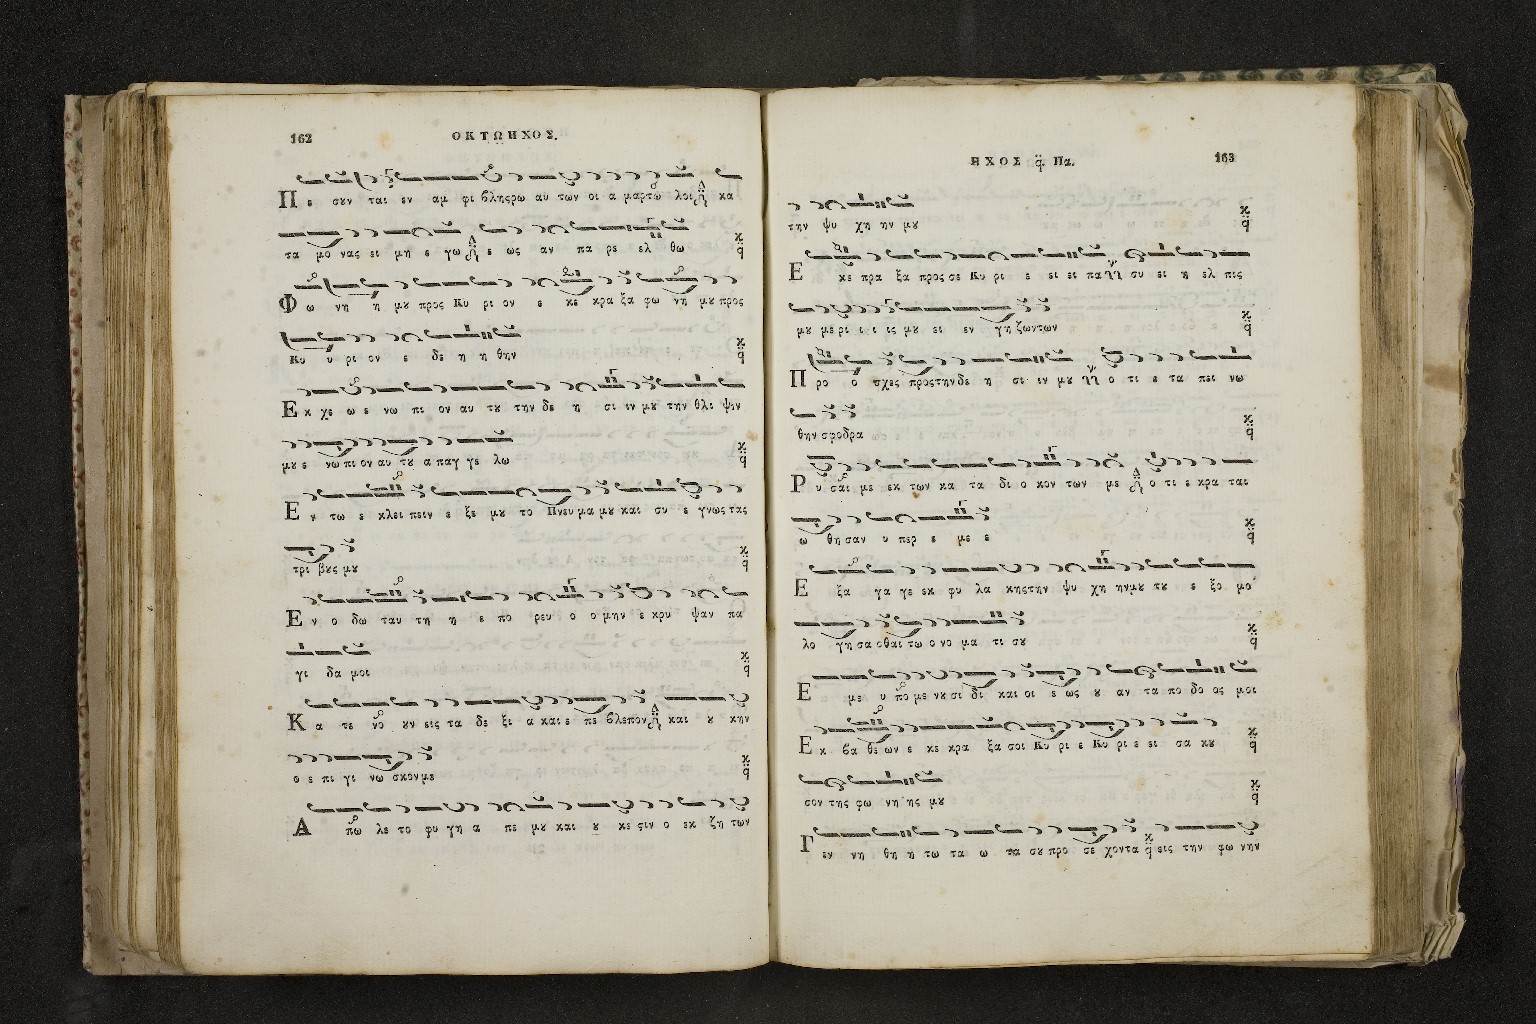 162
ΟΚΤΩΗΧΟΣ.
Πε σουν ται εν αμ φι βληςρω αυ των οι α μαρτω λοι κα
τα μο νας ει μη ε γω ε ως αν πα ρε ελ θω
Φω νη η μου προς Κυ ρι ον ε κε κρα ξα φω νη μου προς
Κυ υ ρι ον ε δε η η θην
Εκ χε ω ε νω πι ον αυ του την δε η σι ιν μου την θλι ψιν
μου ε νω πι ον αυ του α παγ γε λω
Εν τω ε κλει πειν ε ξε μου το Πνευ μα μου και συ ε γνως τας
τρι βους μου
Εν ο δω ταυ τη η ε πο ρευ ο ο μην ε κρυ ψαν πα
γι δα μοι
Κα τε νο ουν εις τα δε ξι α και ε πε βλεπον και ου κην
ο ε πι γι νω σκον με
Α πω λε το φυ γη α πε μου και ου κε ςιν ο εκ ζη των
ΗΧΟΣ Πα.
163
την ψυ χη ην μου
Ε κε κρα ξα προς σε Κυ ρι ε ει ει πα συ ει η ελ πις
μου με ρι ι ι ις μου ει εν γη ζωντων
Προ ο σχες προς την δε η σι ιν μου ο τι ε τα πει νω
θην σφοδρα
Ρυ σαι με εκ των κα τα δι ο κον των με ο τι ε κρα ται
ω θη σαν υ περ ε με ε
Ε ξα γα γε εκ φυ λα κης την ψυ χη ην μου του ε ξο μο
λο γη σα σθαι τω ο νο μα τι σου
Ε με υ πο με νου σι δι και οι ε ως ου αν τα πο δο ος μοι
Εκ βα θε ων ε κε κρα ξα σοι Κυ ρι ε Κυ ρι ε ει σα κου
σον της φω νη ης μου
Γεν νη θη η τω τα ω τα σου προ σε χον τα εις την φω νην